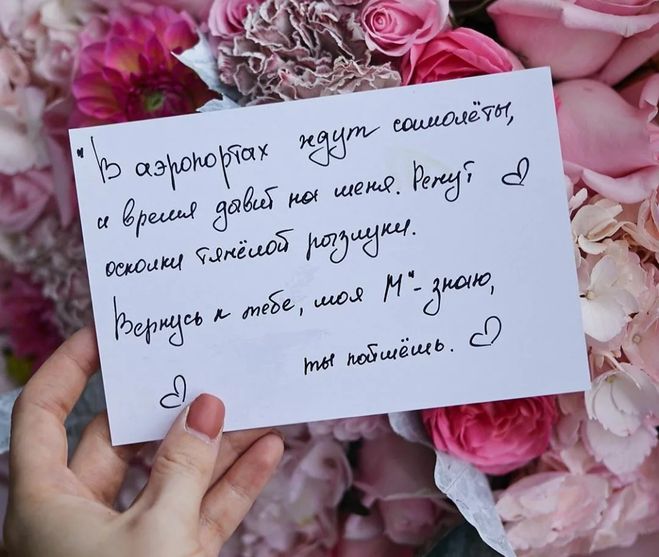 "В аэропортах ждут самолёты,
и время давит на меня. Режут
осколки тяжёлой разлуки.
Вернусь к тебе, моя М"- знаю,
ты поймёшь.